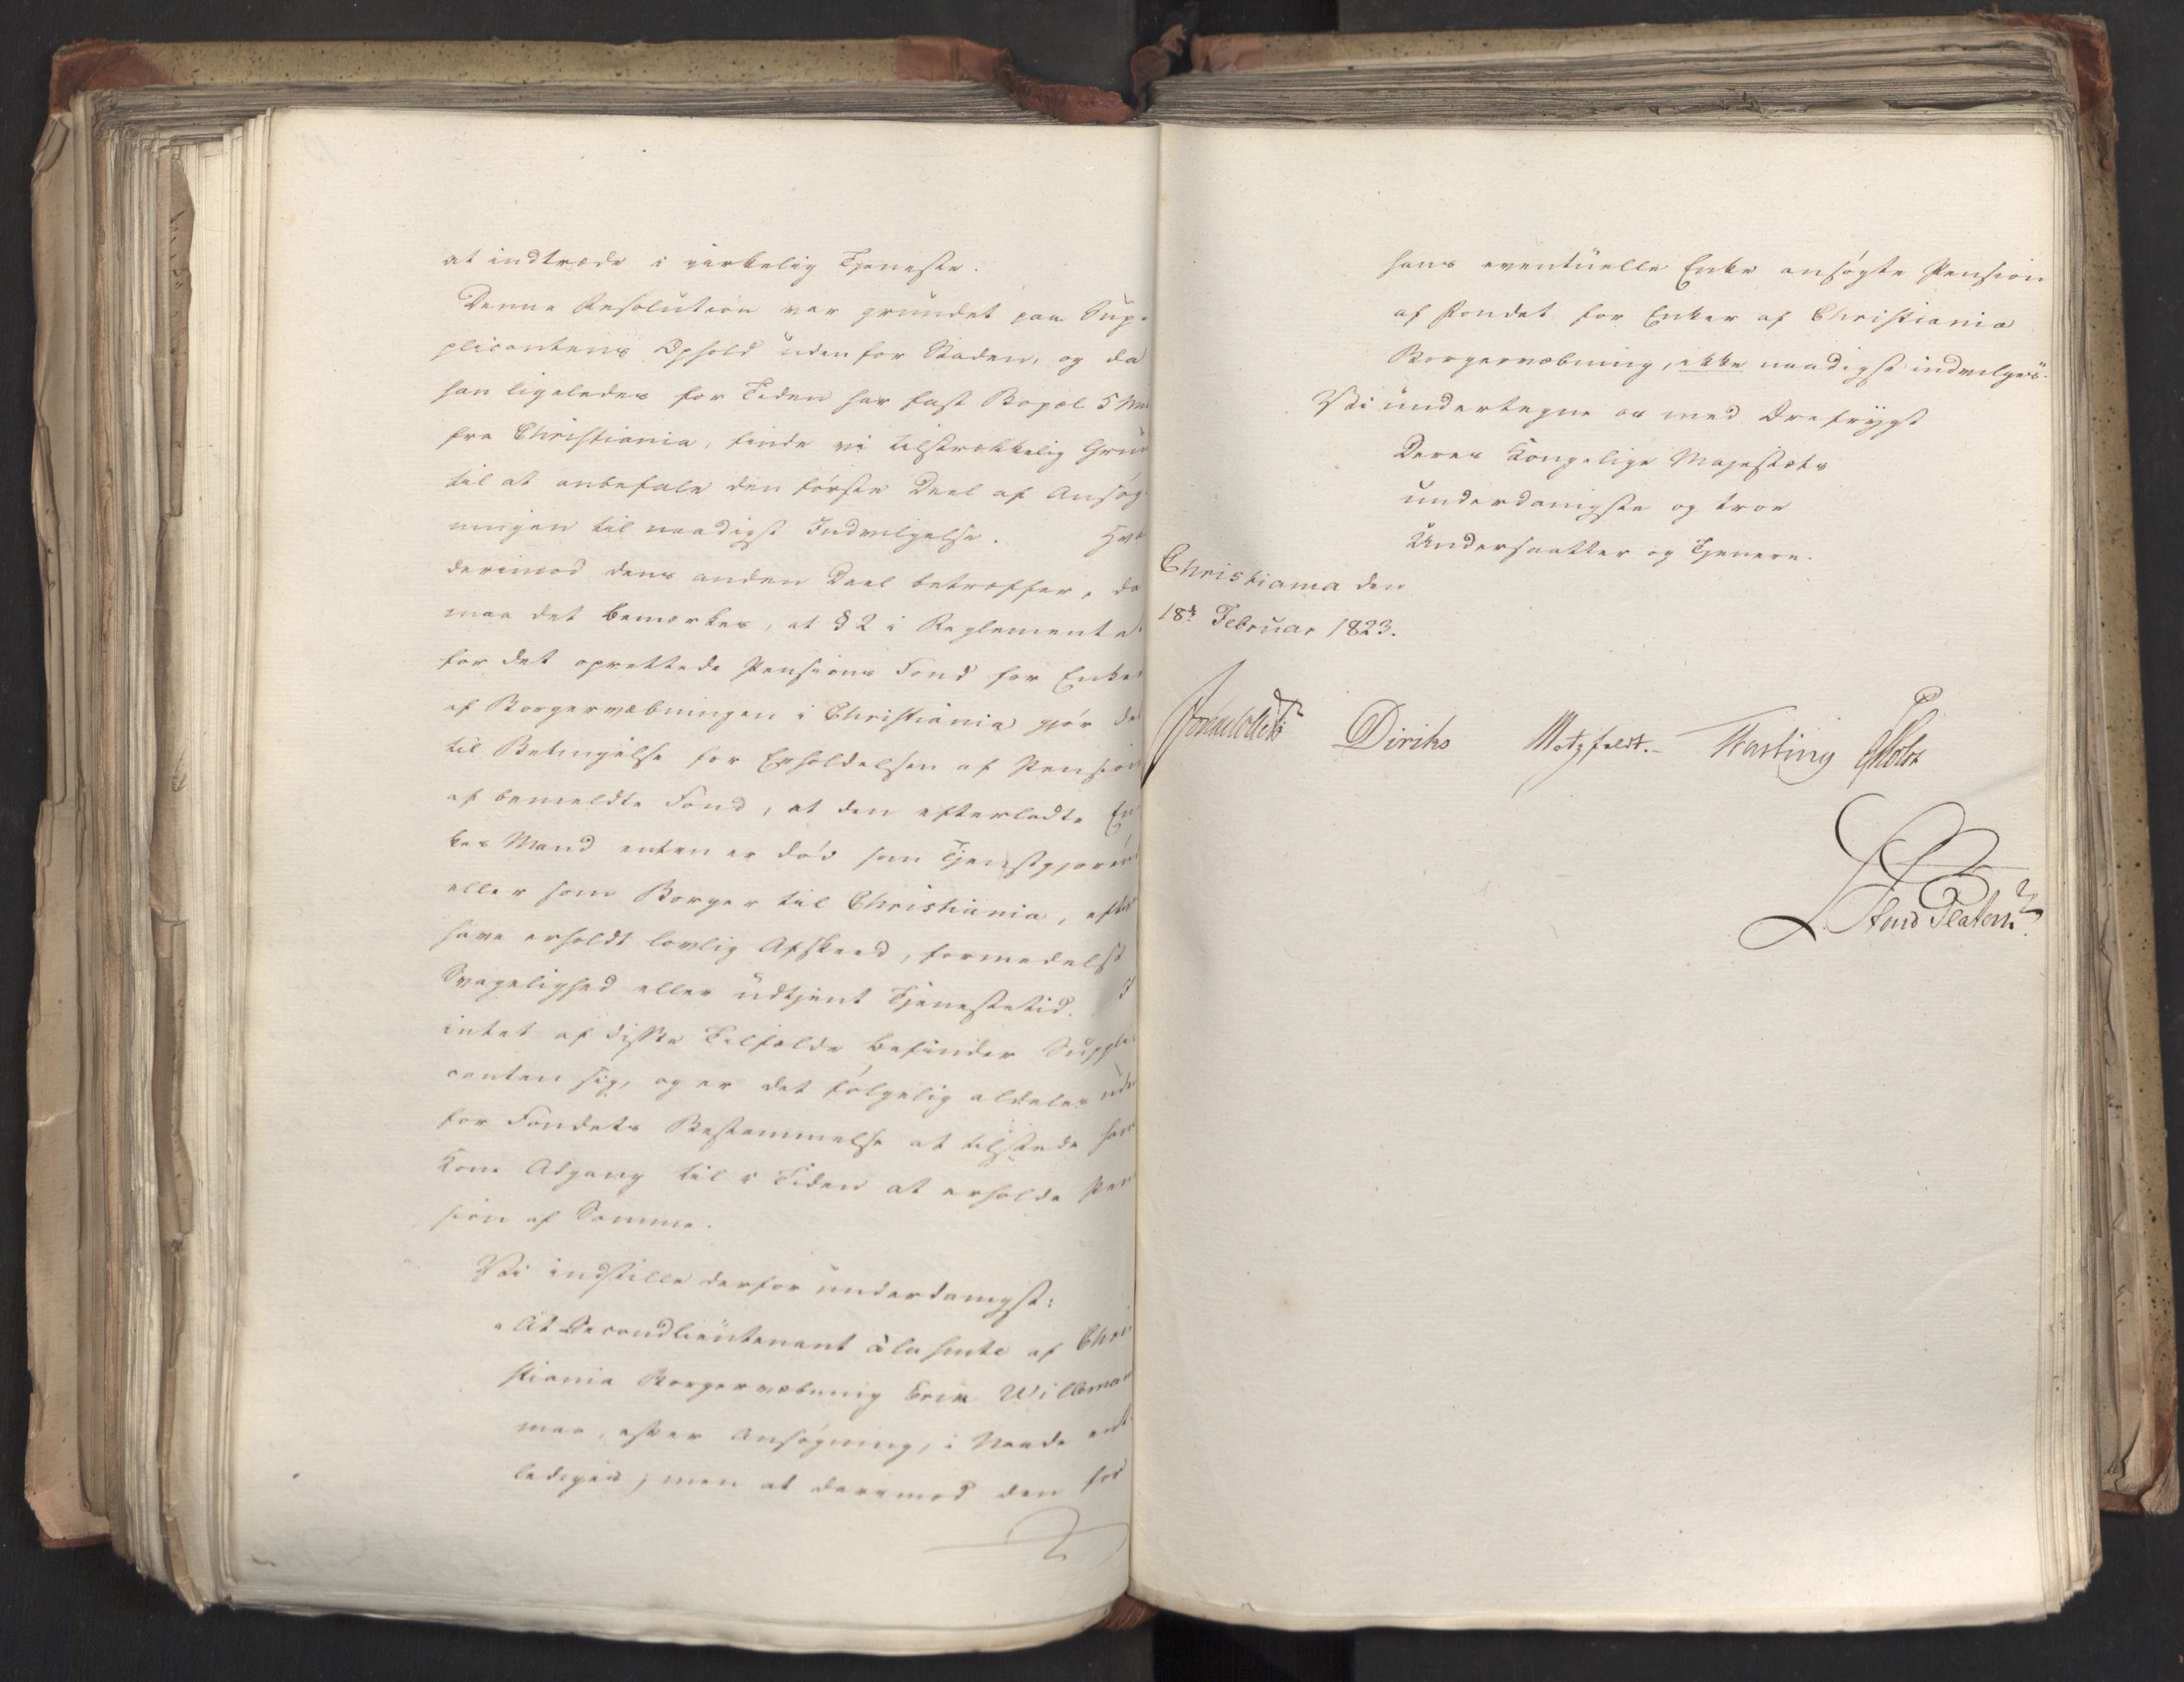 at indtræde i virkelig Tjeneste.
Denne Resolution var grundet paa Sup-
plicantens Ophold uden for Staden, og da
han ligeledes for Tiden har fast Bopæl 5 Mi
fra Christiania, finde vi tilstrækkelig Grun
til at anbefale den første Deel af Ansøg
ningen til naadigst Indvilgelse. Hva
derimod dens anden Deel betræffer, da
maa det bemærkes, at § 2 i Reglementet
for det oprettede Pensions Fond for Enker
af Borgervæbningen i Christiania gjør det
til Betingelse for Erholdelsen af Pension
af bemeldte Fond, at den efterladte En
kes Mand enten er død som Tjenstgjørend
eller som Borger til Christiania, efter
have erholdt lovlig Afskeed, formedelst
Svagelighed eller udtjent Tjenestetid. I
intet af disse Tilfælde befinder Suppli-
canten sig, og er det følgelig aldeles uden
for Fondets Bestemmelse at tilstede hans
Kone Adgang til i Tiden at erholde Pen
sion af Samme.
Vi indstille derfor underdanigst:
"At Secondlieutenant à la suite af Chri
stiania Borgervæbning Erik Willoman
maa, efter Ansøgning, i Naade ent
lediges; men at derimod den for
hans eventuelle Enke ansøgte Pension
af Fondet for Enker af Christiania
Borgervæbning, ikke naadigst indvilges".
Vi undertegne os med Dree frygt
Deres Kongelige Majestæts
underdanigste og troe
Undersaatter og Tjenere.
Christiania den
18d Februar 1823.
Diriks Motzfeldt. Fasting Holst